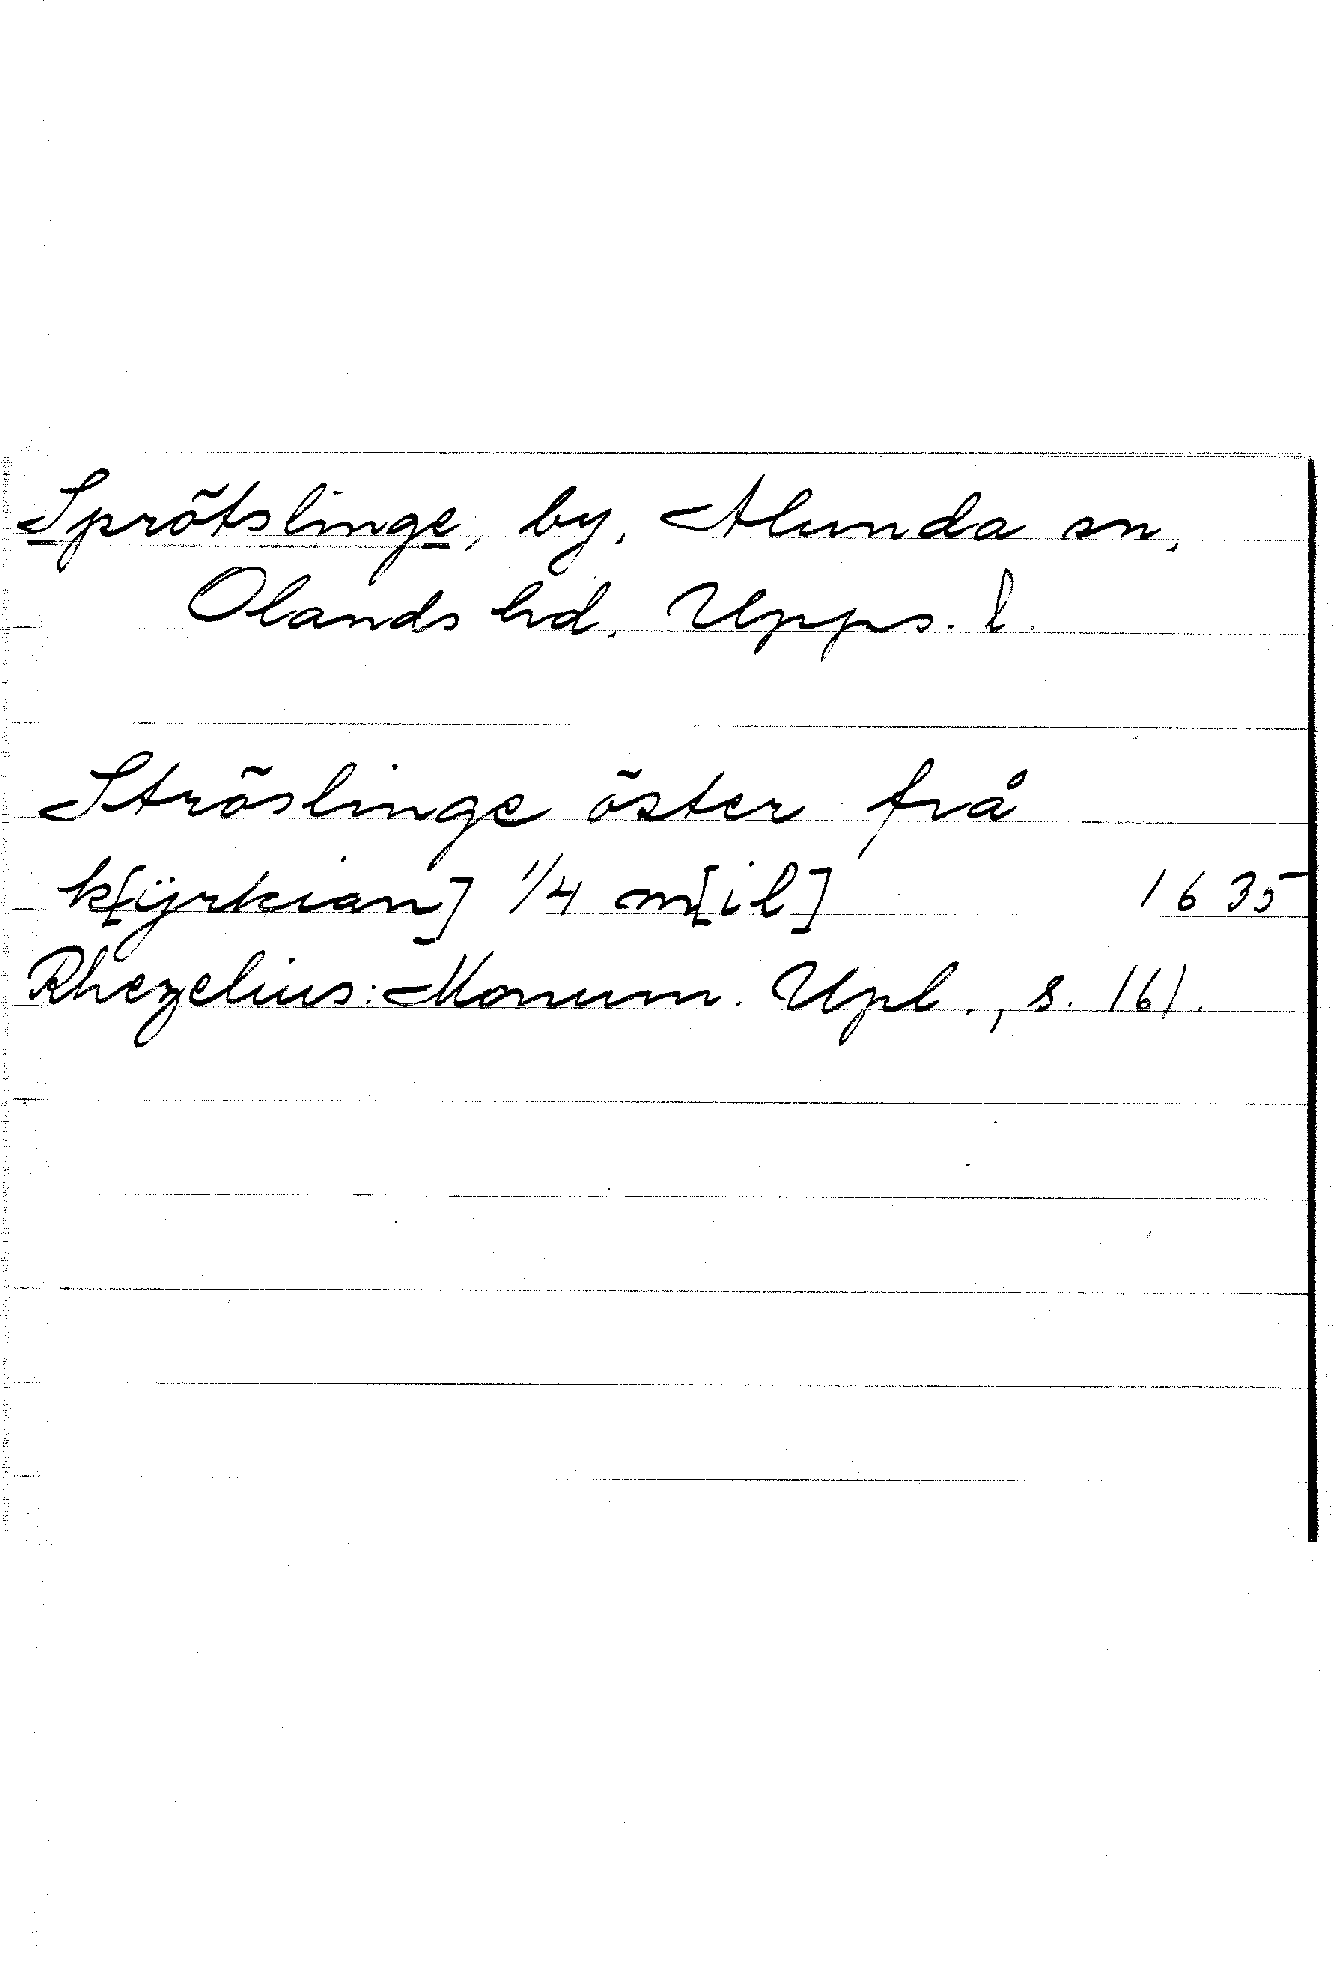 Sprötslinge, by, Alunda sn,
Olands hd, Upps. l.
Ströslinge öster frå
k[ÿrkian] 1/4 m[il] 1635
Rhezelius: Monum. Upl., s. 161.